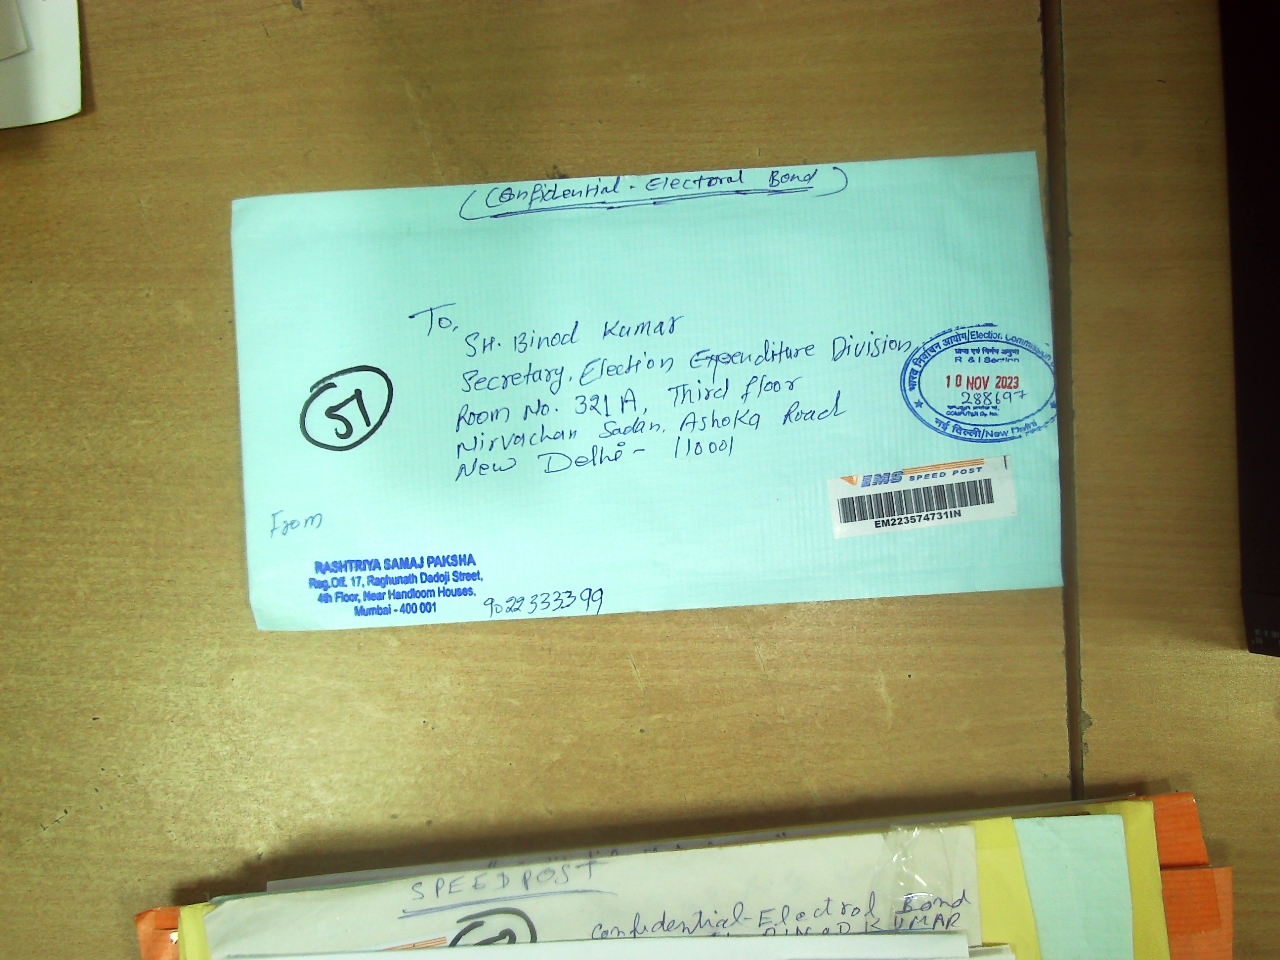 (Confidential - Electoral Bond)
To,
SH. Binod Kumar
Secretary, Election Expenditure Division
Room No. 321A, Third floor
Nirvachan Sadan, Ashoka Road
New Delhi - 110001
51
भारत निर्वाचन आयोग/Election Commission
R & I Section
10 NOV 2023
288697
नई दिल्ली/New Delhi
EMS SPEED POST
EM223574731IN
From
RASHTRIYA SAMAJ PAKSHA
Reg.Off. 17, Raghunath Dadoji Street,
4th Floor, Near Handloom Houses,
Mumbai - 400 001
9022333399
SPEEDPOST
Confidential-Electrol Bond
BINOD KUMAR